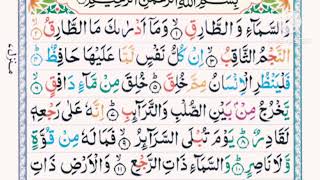 بِسْمِ اللّٰهِ الرَّحْمٰنِ الرَّحِيْمِ
وَالسَّمَآءِ وَالطَّارِقِ ۙ﴿۱﴾ وَمَاۤ اَدْرٰىكَ مَا الطَّارِقُ ۙ﴿۲﴾
النَّجْمُ الثَّاقِبُ ۙ﴿۳﴾ اِنْ كُلُّ نَفْسٍ لَّمَّا عَلَيْهَا حَافِظٌ ؕ﴿۴﴾
فَلْيَنْظُرِ الْاِنْسَانُ مِمَّ خُلِقَ ؕ﴿۵﴾ خُلِقَ مِنْ مَّآءٍ دَافِقٍ ۙ﴿۶﴾
يَّخْرُجُ مِنْۢ بَيْنِ الصُّلْبِ وَالتَّرَآئِبِ ؕ﴿۷﴾ اِنَّهٗ عَلٰى رَجْعِهٖ
لَقَادِرٌ ؕ﴿۸﴾ يَوْمَ تُبْلَى السَّرَآئِرُ ۙ﴿۹﴾ فَمَا لَهٗ مِنْ قُوَّةٍ
وَّلَا نَاصِرٍ ؕ﴿۱۰﴾ وَالسَّمَآءِ ذَاتِ الرَّجْعِ ۙ﴿۱۱﴾ وَالْاَرْضِ ذَاتِ
منزل